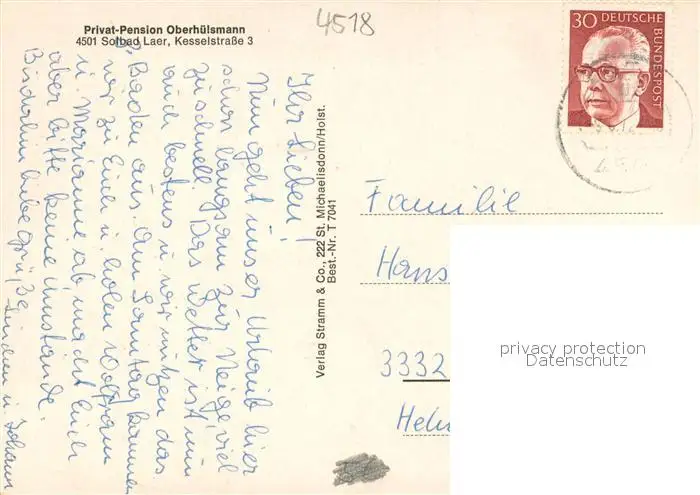 4518
Privat-Pension Oberhülsmann
4501 Solbad Laer, Kesselstraße 3
Ihr Lieben!
Nun geht unser Urlaub hier
schon langsam zur Neige, viel
zu schnell. Das Wetter ist nun
auch bestens u. wir nutzen das
Baden aus. Am Samstag kommen
wir zu Euch u. holen Wolfram
u. Marianne ab, macht Euch
aber bitte keine Umstände.
Bis dahin liebe Grüße
u. Johann
Verlag Stramm & Co., 222 St. Michaelisdonn/Holst.
Best.-Nr. T 7041
30 DEUTSCHE
BUNDESPOST
Familie
Hans
3332
Helm
privacy protection
Datenschutz